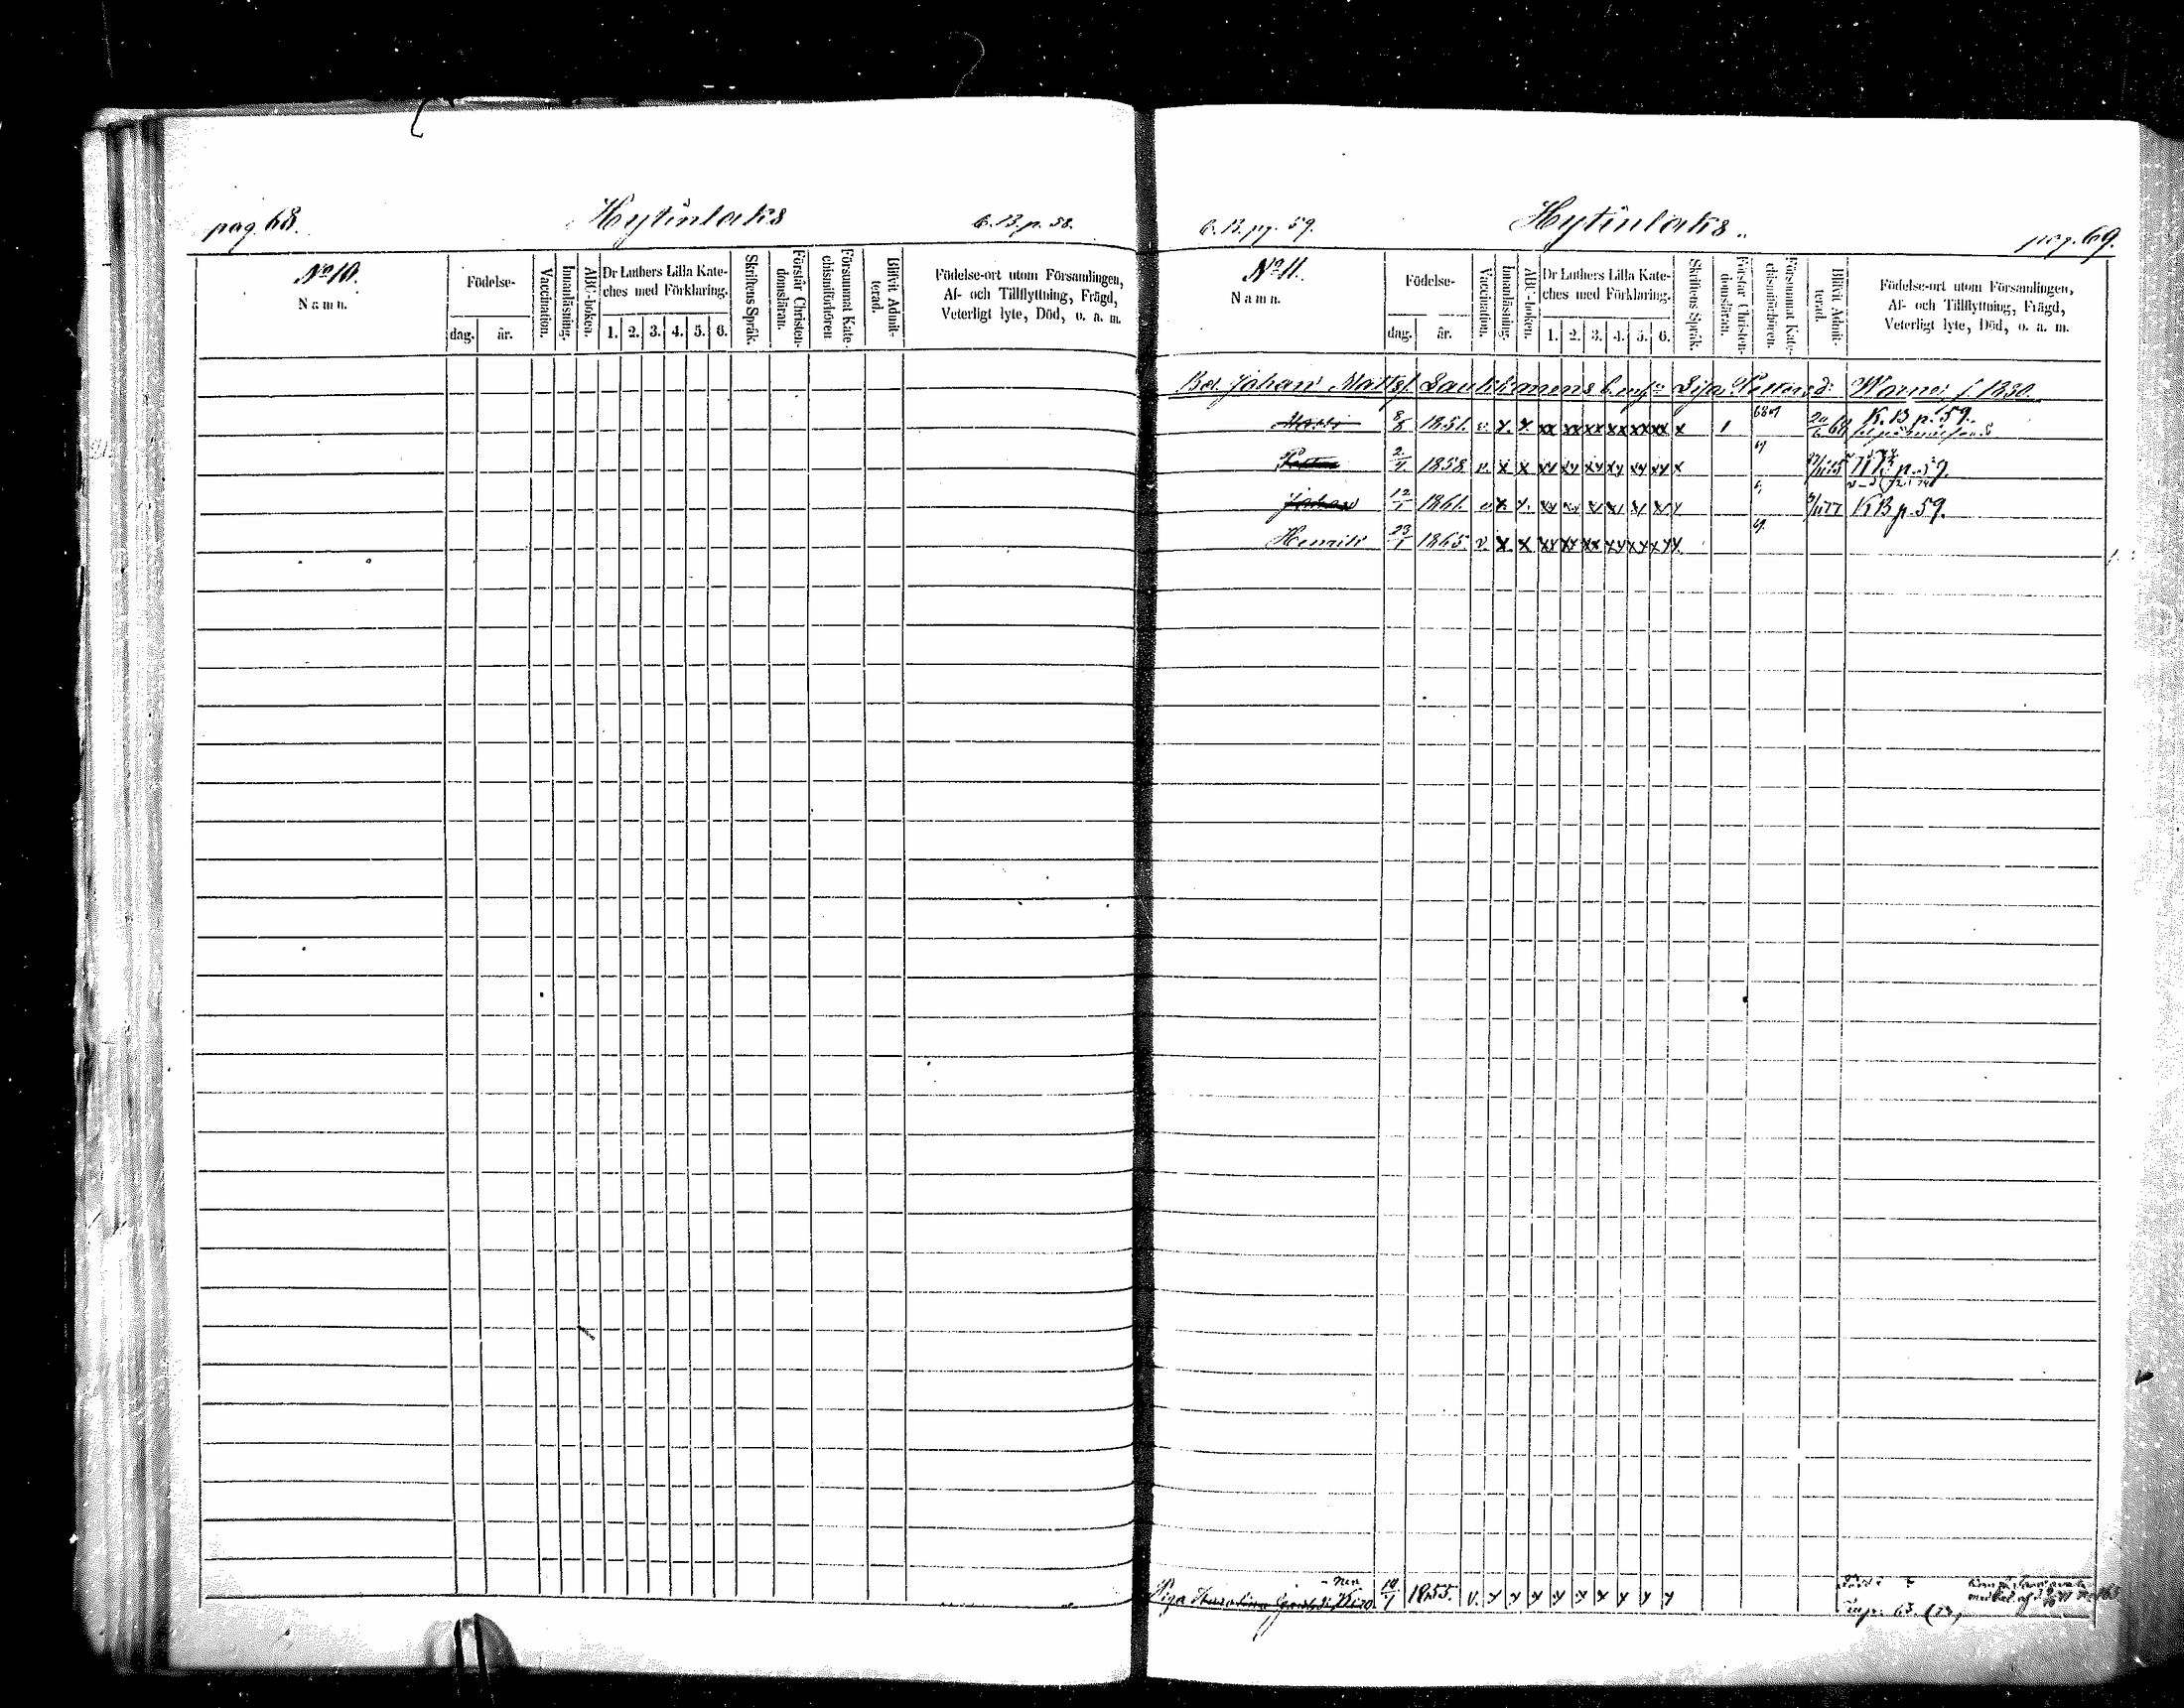 pag. 68.
Hytinlaks
C. B. p. 58.
No 10.
Namn.
Födelse-
dag.
år.
Vaccination.
Innanläsning.
ABC-boken.
Dr Luthers Lilla Kate-
ches med Förklaring.
1. 2. 3. 4. 5. 6.
Skriftens Språk.
Förstår Christen-
domsläran.
Försummat Kate-
chismiförhören
Blifvit Admit-
terad.
Födelse-ort utom Församlingen,
Af- och Tillflyttning, Frägd,
Veterligt lyte, Död, o. a. m.
C. B. pg. 59.
Hytinlaks.
pag. 69.
No 11.
Namn.
Födelse-
dag.
år.
Vaccination.
Innanläsning.
ABC-boken.
Dr Luthers Lilla Kate-
ches med Förklaring.
1. 2. 3. 4. 5. 6.
Skriftens Språk.
Förstår Christen-
domsläran.
Försummat Kate-
chismiförhören.
Blifvit Admit-
terad.
Födelse-ort utom Församlingen,
Af- och Tillflyttning, Frägd,
Veterligt lyte, Död, o. a. m.
Johan Matts. Laukkanens f. 1830.
1851. v. x. x. xx xx xx xx xx xx x 1 K. B p. 59.
2/1 1858 v. x x xx xx xx xx xx xx x p. 59.
Johan 12/1 1861. v x. x. xx xx xx xx xx xx x K B p. 59.
Henrik 23/1 1865. v. x x xx xx xx xx xx xx x
Piga 1855. v. x x x x x x x x x
63.